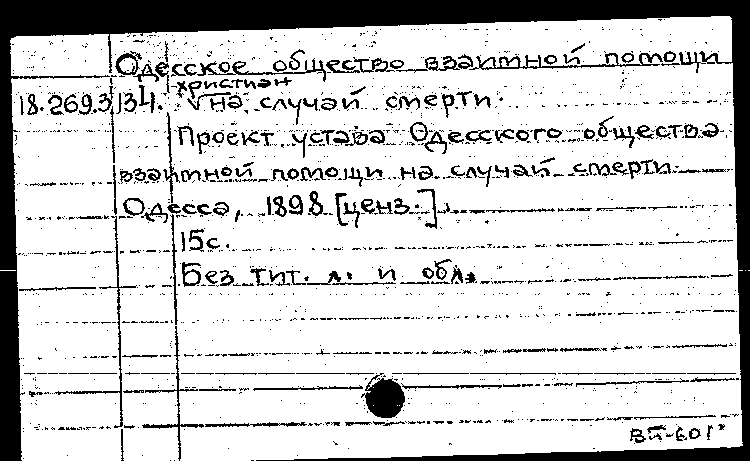 Одесское общество взаимной помощи
христиан
18.269.3.134. √ на случай смерти.
Проект устава Одесского общества
взаимной помощи на случай смерти.
Одесса, 1898 [ценз.].
15с.
Без тит. л. и обл.